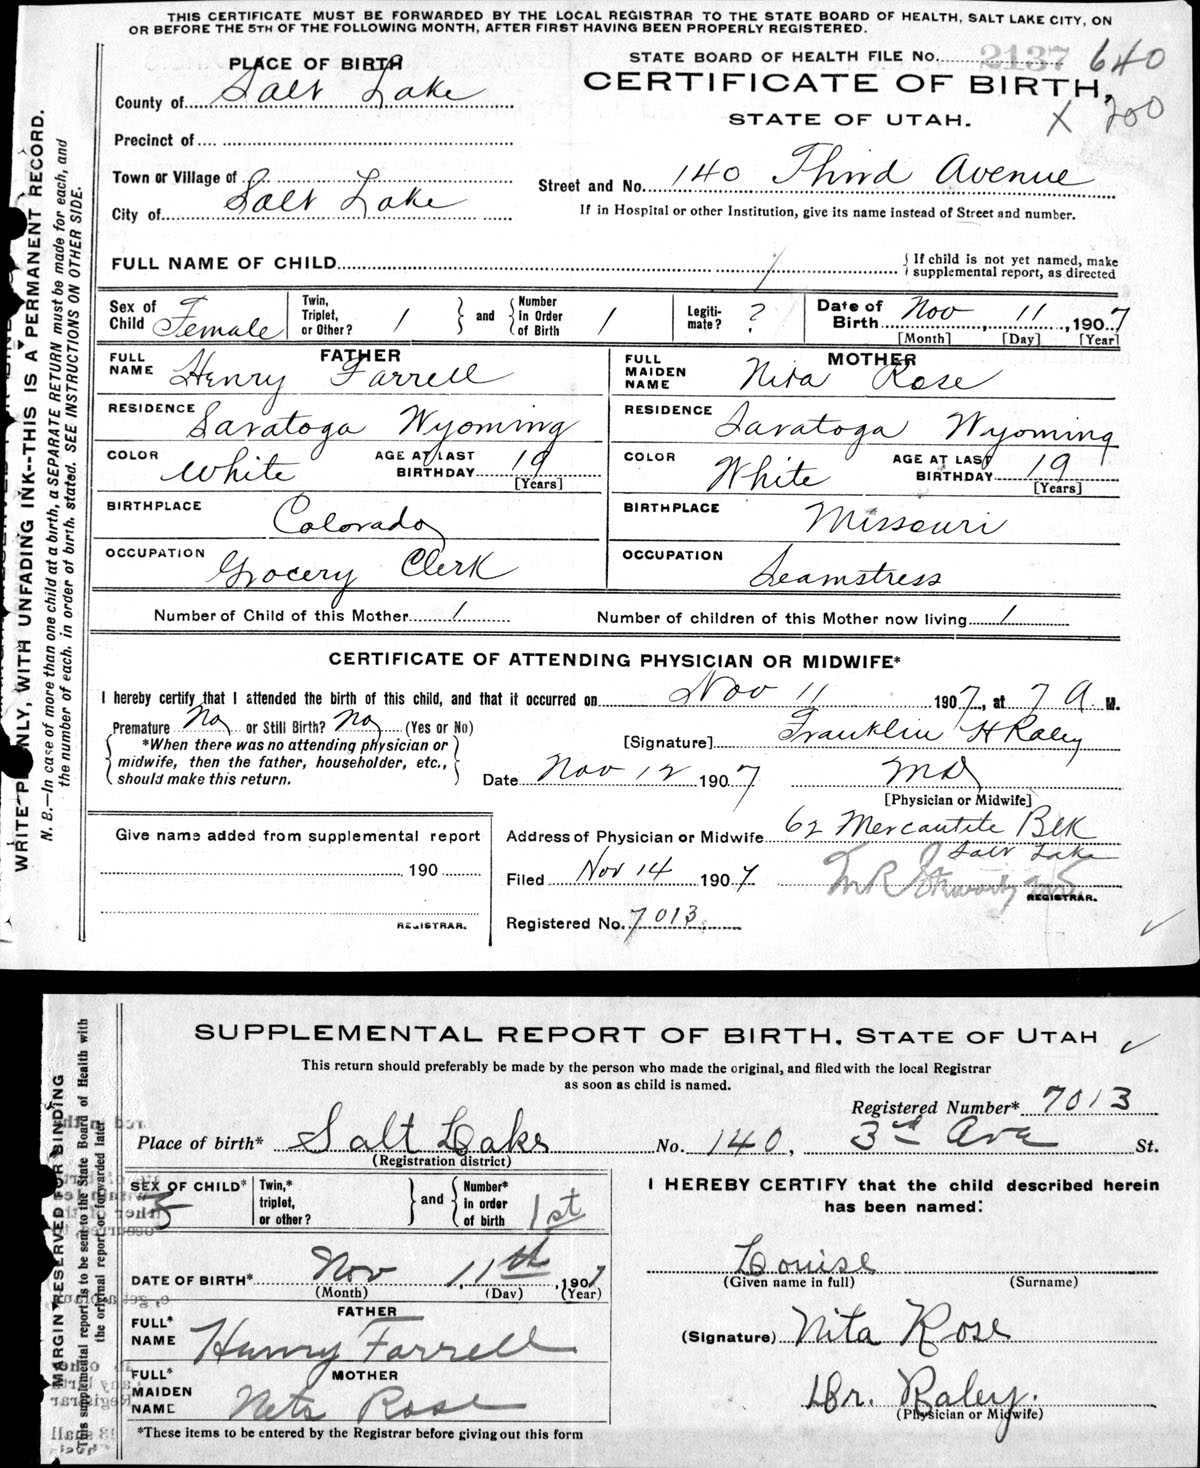 THIS CERTIFICATE MUST BE FORWARDED BY THE LOCAL REGISTRAR TO THE STATE BOARD OF HEALTH, SALT LAKE CITY, ON
OR BEFORE THE 5TH OF THE FOLLOWING MONTH, AFTER FIRST HAVING BEEN PROPERLY REGISTERED.
STATE BOARD OF HEALTH FILE NO. 2137 640
PLACE OF BIRTH
CERTIFICATE OF BIRTH,
County of Salt Lake
STATE OF UTAH. X 200
Precinct of
Town or Village of
Street and No. 140 Third Avenue
City of Salt Lake
If in Hospital or other Institution, give its name instead of Street and number.
FULL NAME OF CHILD
If child is not yet named, make
supplemental report, as directed
Sex of Child Female Twin, Triplet, or Other? 1 and Number in Order of Birth 1 Legiti-mate? ? Date of Birth Nov, 11, 1907
[Month] [Day] [Year]
FATHER
FULL NAME Henry Farrell
MOTHER
FULL MAIDEN NAME Nita Rose
RESIDENCE Saratoga Wyoming
RESIDENCE Saratoga Wyoming
COLOR White AGE AT LAST BIRTHDAY 19 [Years]
COLOR White AGE AT LAST BIRTHDAY 19 [Years]
BIRTHPLACE Colorado
BIRTHPLACE Missouri
OCCUPATION Grocery Clerk
OCCUPATION Seamstress
Number of Child of this Mother 1 Number of children of this Mother now living 1
CERTIFICATE OF ATTENDING PHYSICIAN OR MIDWIFE*
I hereby certify that I attended the birth of this child, and that it occurred on Nov 11 1907, at 7 A. M.
Premature No or Still Birth? No (Yes or No)
*When there was no attending physician or
midwife, then the father, householder, etc.,
should make this return.
[Signature] Franklin H Raley
Date Nov 12 1907 MD
[Physician or Midwife]
Give name added from supplemental report
190
REGISTRAR.
Address of Physician or Midwife 62 Mercantile Blk
Salt Lake
Filed Nov 14 1907
REGISTRAR.
Registered No. 7013
WRITE PLAINLY, WITH UNFADING INK--THIS IS A PERMANENT RECORD.
N. B.—In case of more than one child at a birth, a SEPARATE RETURN must be made for each, and
the number of each. in order of birth. stated. SEE INSTRUCTIONS ON OTHER SIDE.
SUPPLEMENTAL REPORT OF BIRTH, STATE OF UTAH
This return should preferably be made by the person who made the original, and filed with the local Registrar
as soon as child is named.
Registered Number* 7013
Place of birth* Salt Lake No. 140, 3rd Ave St.
(Registration district)
SEX OF CHILD* Twin,* triplet, or other? and Number* in order of birth 1st
I HEREBY CERTIFY that the child described herein
has been named:
DATE OF BIRTH* Nov 11th, 1907
(Month) (Day) (Year)
Louise
(Given name in full) (Surname)
FATHER
FULL* NAME Henry Farrell
(Signature) Nita Rose
MOTHER
FULL* MAIDEN NAME Neta Rose
Dr. Raley.
(Physician or Midwife)
*These items to be entered by the Registrar before giving out this form
MARGIN RESERVED FOR BINDING
This supplemental report is to be sent to the State Board of Health with
the original report or forwarded later